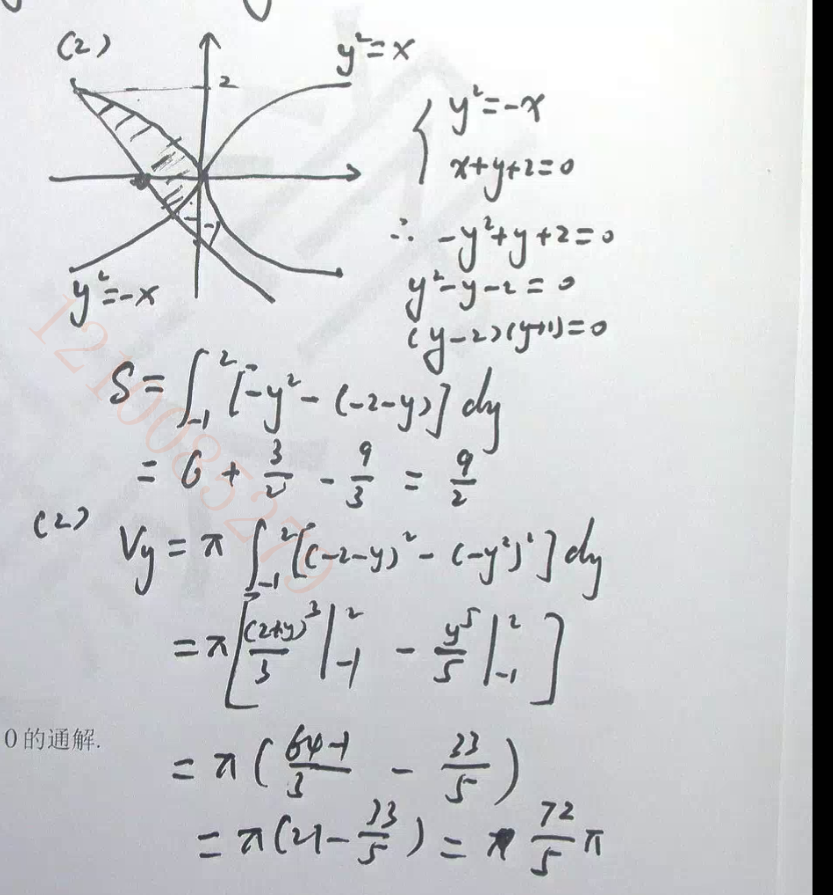 (2)
y²=x
2
y²=-x
{ y²=-x
x+y+2=0
∴ -y²+y+2=0
y²-y-2=0
(y-2)(y+1)=0
y²=-x
S=∫₋₁² [-y²-(-2-y)] dy
= 6 + 3/2 - 9/3 = 9/2
(2) Vy = π ∫₋₁² [(-2-y)² - (-y²)²] dy
= π [ (2+y)³/3 |₋₁² - y⁵/5 |₋₁² ]
0的通解.
= π ( (64-1)/3 - 33/5 )
= π (21 - 33/5) = 72/5 π
1210085279